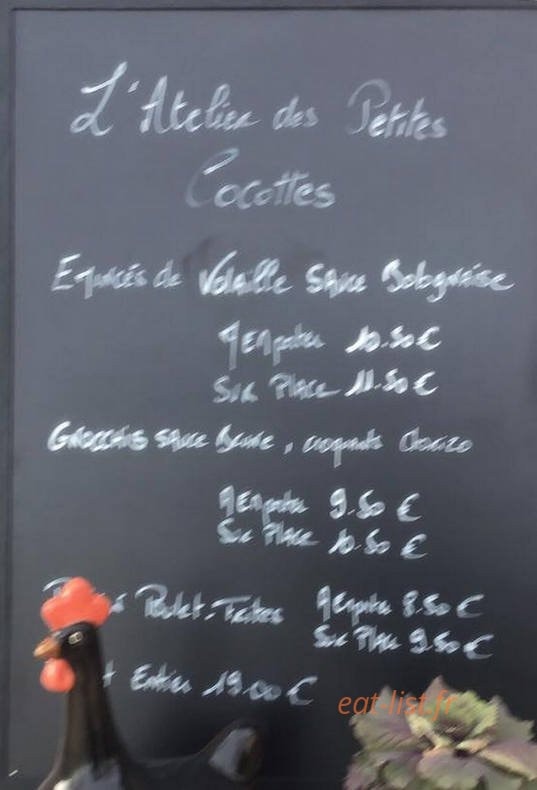 L'Atelier des Petites
Cocottes
Emincés de Volaille Sauce Bolognaise
A Emporter 10.50€
Sur Place 11.50€
Gnocchis sauce , croquants Chorizo
A Emporter 9.50 €
Sur Place 10.50 €
Poulet-Frites A Emporter 8.50€
Sur Place 9.50€
Entier 19.00€
eat-list.fr